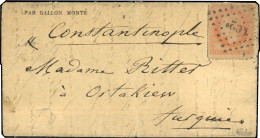 PAR BALLON MONTÉ
Constantinople
Madame Ritter
à Ortakieu
Turquie